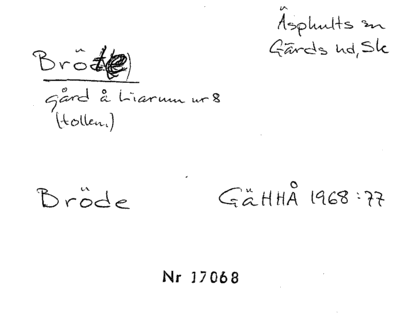 Äsphults sn
Gärds hd, Sk
Bröd
gård å Liarum nr 8
(tollen.)
Bröde GäHHÅ 1968:77
Nr 17068